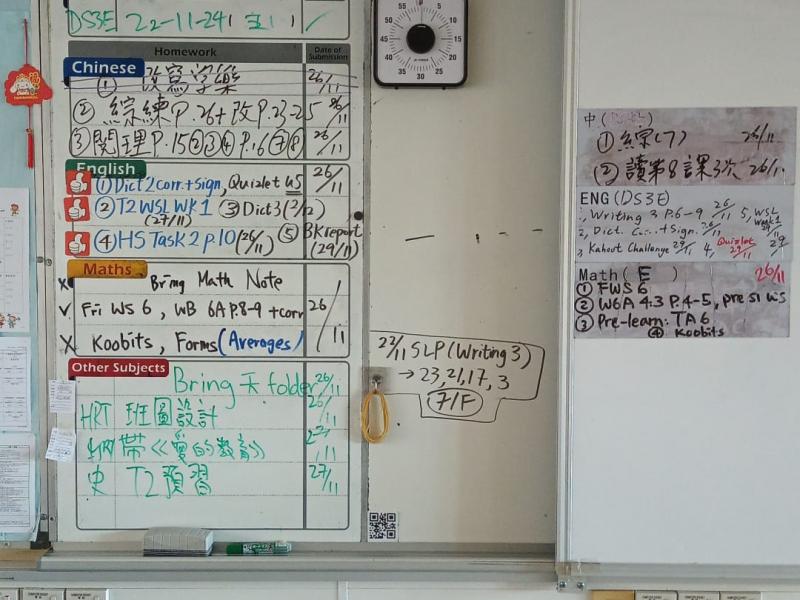 DS3E 22-11-24
Homework
Date of Submission
Chinese
① 改寫字樂 26/11
② 綜練P.26+改P.23-25 26/11
③ 閱理P.15②③④P.16⑦⑧ 26/11
English
① Dict 2 corr.+Sign, Quizlet U5 26/11
② T2 WSL WK1 ③ Dict 3 (2/12)
(27/11)
④ HS Task 2 p.10 (26/11) ⑤ BK report (29/11)
Maths
X Bring Math Note
✓ Fri WS 6, WB 6A P.8-9 +corr 26/11
X Koobits, Forms (Averages)
Other Subjects
Bring 天 folder 26/11
HRT 班圖設計 26/11
帶《愛的教育》
史 T2預習 27/11
60 5 10 15 20 25 30 35 40 45 50 55
22/11 SLP (Writing 3)
→ 23, 21, 17, 3
7/F
中
① 綜(7) 26/11
② 讀第8課3次 26/11
ENG (DS3E)
1, Writing 3 P.6-9 26/11 5, WSL Week 1
2, Dict. Corr. + Sign. 26/11
3, Kahoot Challenge 29/11 4, Quizlet 29/11
Math (E) 26/11
① FWS 6
② W6A 4.3 P.4-5,
③ Pre-learn: TA 6
④ Koobits